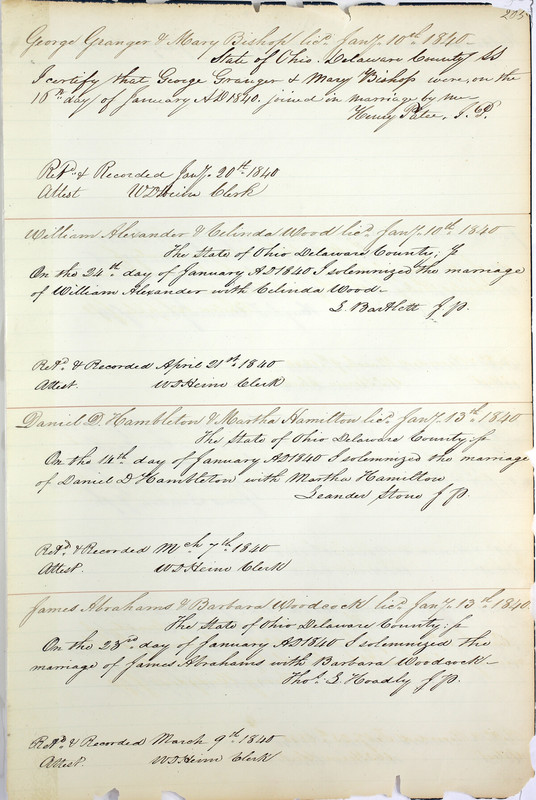 205
George Granger & Mary Bishop licd. Jany. 10th. 1840
State of Ohio. Delaware County SS
I certify that George Granger & Mary Bishop were, on the
16th day of January AD 1840. joined in marriage by me
Henry Patee, J. P.
Retd & Recorded Jany. 20th 1840
Attest W D Heim Clerk
William Alexander & Celinda Wood licd. Jany. 10th. 1840
The State of Ohio Delaware County,
On the 24th day of January AD 1840 I solemnized the marriage
of William Alexander with Celinda Wood—
S. Bartlett J P.
Retd. & Recorded April 21st 1840
Attest. W D Heim Clerk
Daniel D. Hambleton & Martha Hamilton licd. Jany. 13th. 1840
The State of Ohio Delaware County
On the 14th day of January AD 1840 I solemnized the marriage
of Daniel D Hambleton with Martha Hamilton
Leander Stone J P.
Retd & Recorded Mch 7th 1840
Attest. W D Heim Clerk
James Abrahams & Barbara Woodcock licd. Jany. 13th. 1840.
The State of Ohio Delaware County
On the 23rd. day of January AD 1840 I solemnized the
marriage of James Abrahams with Barbara Woodcock—
Thos. S. Hoadly J P.
Retd. & Recorded March 9th. 1840
Attest. W D Heim Clerk